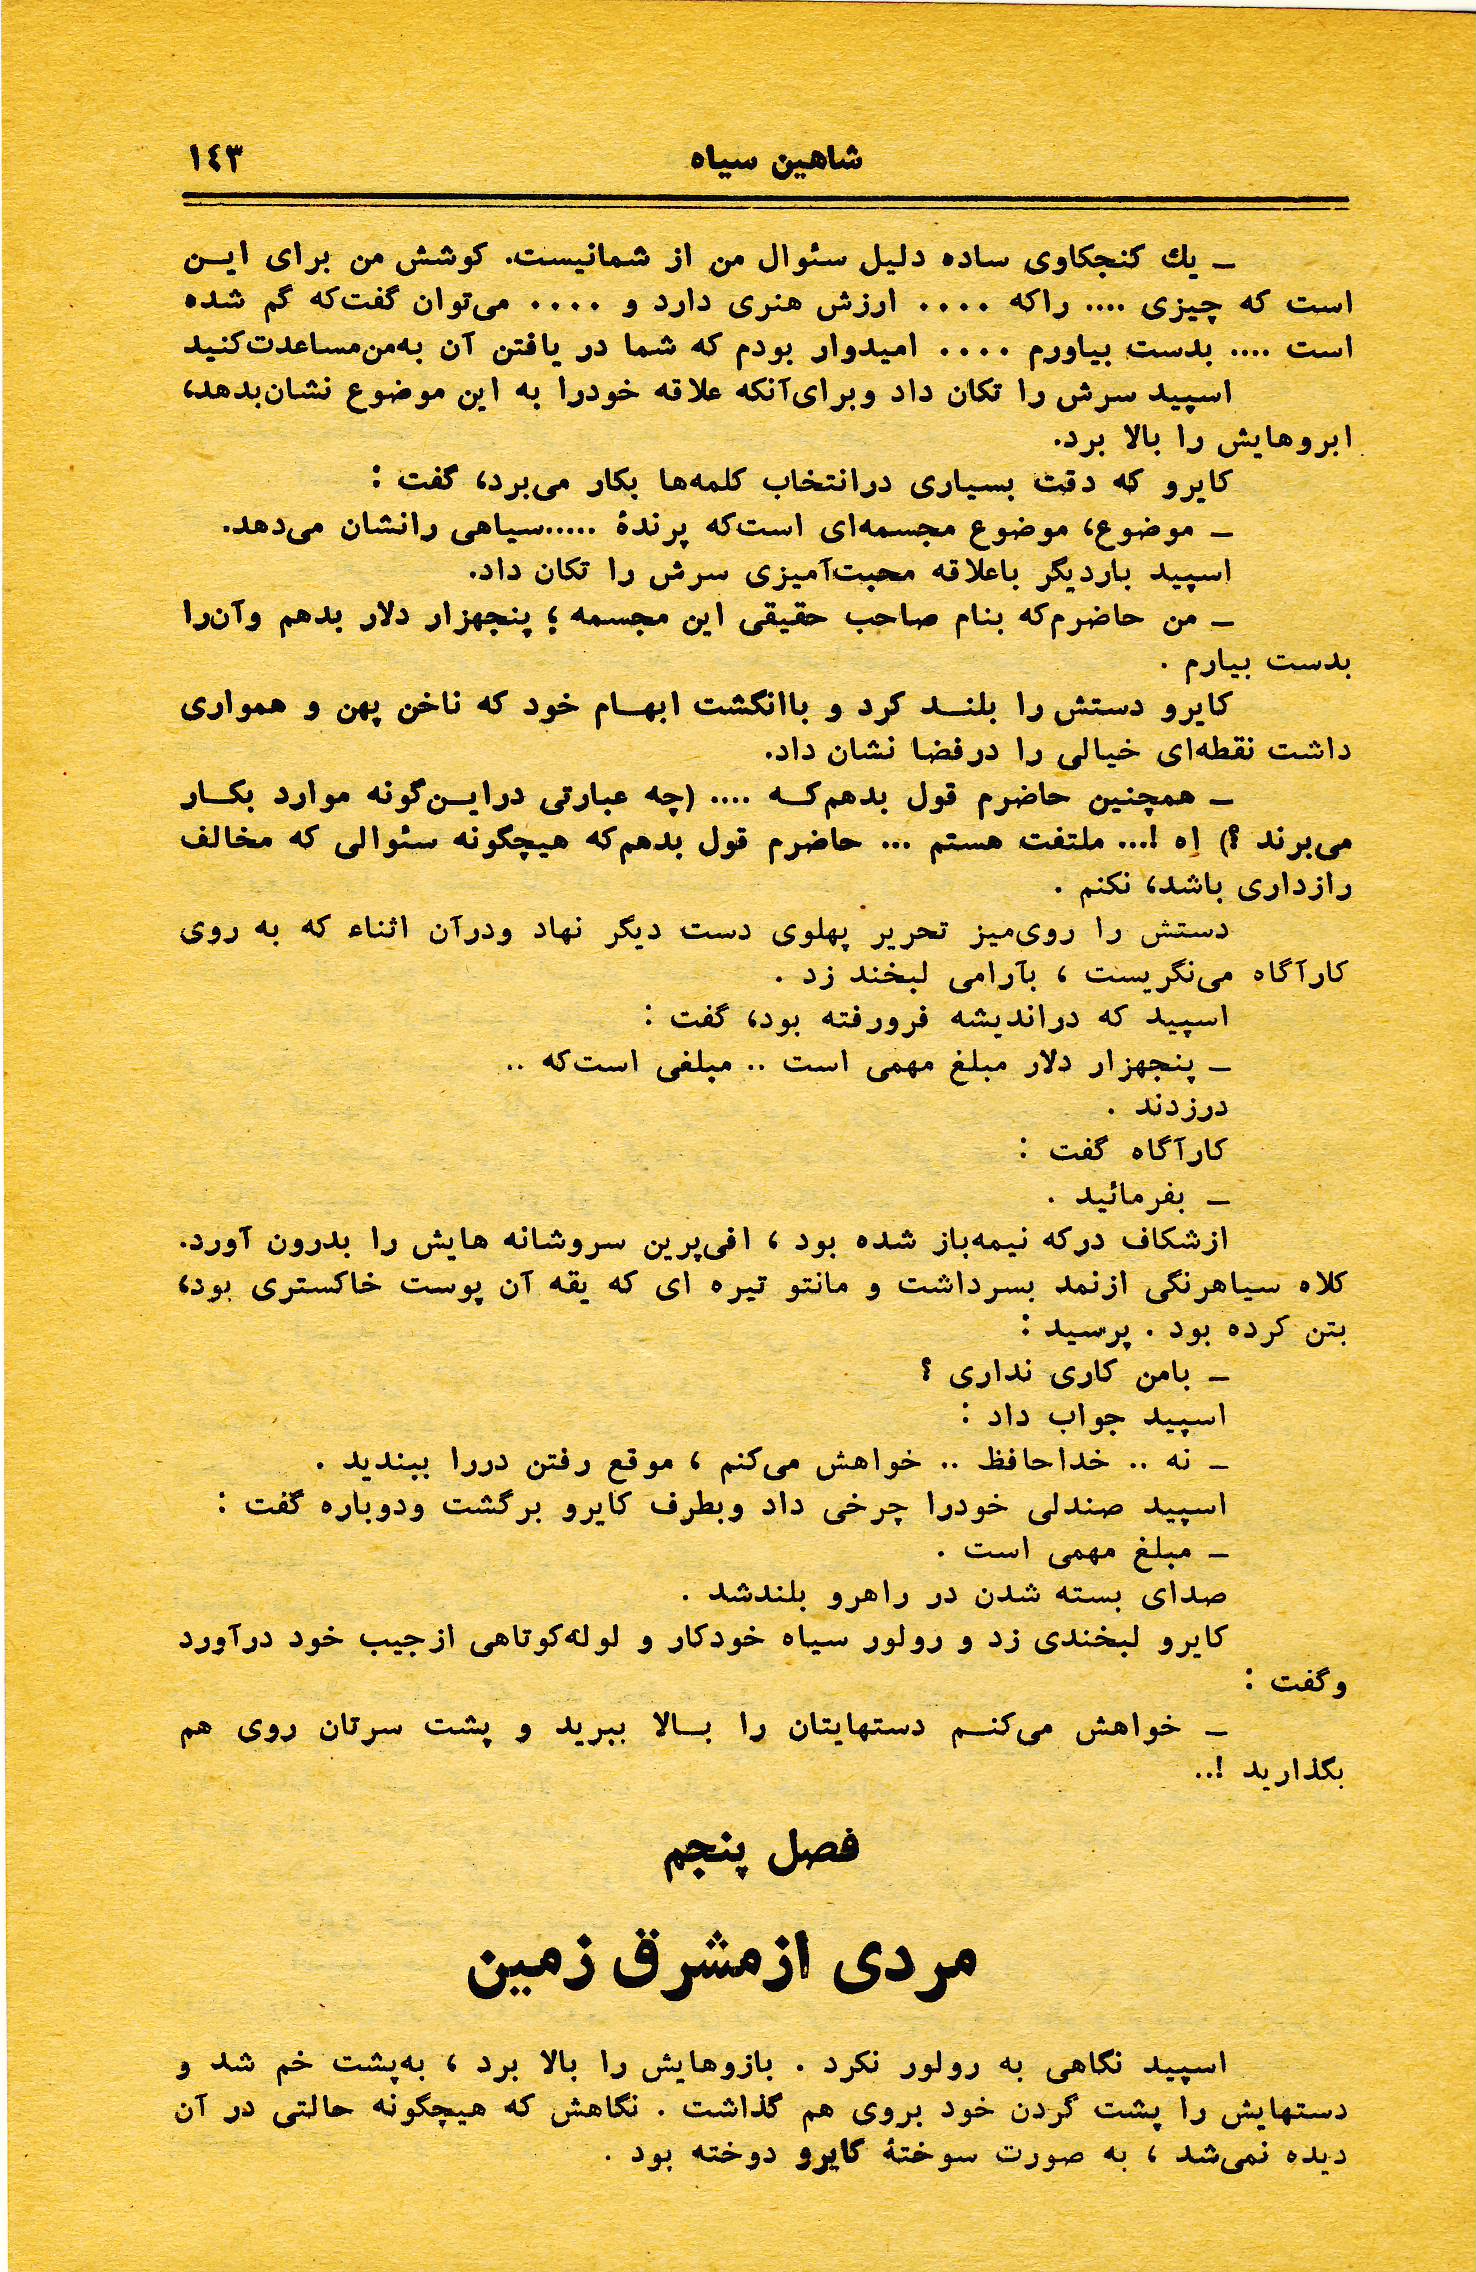 شاهین سیاه
۱٤۳
ــ یك کنجکاوی ساده دلیل سئوال من از شمانیست. کوشش من برای ایــن
است که چیزی .... راکه .... ارزش هنری دارد و .... می‌توان گفت‌که گم شده
است .... بدست بیاورم .... امیدوار بودم که شما در یافتن آن به‌من‌مساعدت‌کنید
اسپید سرش را تکان داد وبرای‌آنکه علاقه خودرا به این موضوع نشان‌بدهد،
ابروهایش را بالا برد.
کایرو که دقت بسیاری درانتخاب کلمه‌ها بکار می‌برد، گفت :
ــ موضوع، موضوع مجسمه‌ای است‌که پرندهٔ .....سیاهی رانشان می‌دهد.
اسپید باردیگر باعلاقه محبت‌آمیزی سرش را تکان داد.
ــ من حاضرم‌که بنام صاحب حقیقی این مجسمه ؛ پنجهزار دلار بدهم وآن‌را
بدست بیارم .
کایرو دستش را بلنــد کرد و باانگشت ابهــام خود که ناخن پهن و همواری
داشت نقطه‌ای خیالی را درفضا نشان داد.
ــ همچنین حاضرم قول بدهم‌کــه .... (چه عبارتی درایــن‌گونه موارد بکــار
می‌برند ؟) اِه !... ملتفت هستم ... حاضرم قول بدهم‌که هیچگونه سئوالی که مخالف
رازداری باشد، نکنم .
دستش را روی‌میز تحریر پهلوی دست دیگر نهاد ودرآن اثناء که به روی
کارآگاه می‌نگریست ، بآرامی لبخند زد .
اسپید که دراندیشه فرورفته بود، گفت :
ــ پنجهزار دلار مبلغ مهمی است .. مبلغی است‌که ..
درزدند .
کارآگاه گفت :
ــ بفرمائید .
ازشکاف درکه نیمه‌باز شده بود ، افی‌پرین سروشانه هایش را بدرون آورد.
کلاه سیاهرنگی ازنمد بسرداشت و مانتو تیره ای که یقه آن پوست خاکستری بود،
بتن کرده بود . پرسید :
ــ بامن کاری نداری ؟
اسپید جواب داد :
ــ نه .. خداحافظ .. خواهش می‌کنم ، موقع رفتن دررا ببندید .
اسپید صندلی خودرا چرخی داد وبطرف کایرو برگشت ودوباره گفت :
ــ مبلغ مهمی است .
صدای بسته شدن در راهرو بلندشد .
کایرو لبخندی زد و رولور سیاه خودکار و لوله‌کوتاهی ازجیب خود درآورد
وگفت :
ــ خواهش می‌کنــم دستهایتان را بــالا ببرید و پشت سرتان روی هم
بگذارید !..
فصل پنجم
مردی ازمشرق زمین
اسپید نگاهی به رولور نکرد . بازوهایش را بالا برد ، به‌پشت خم شد و
دستهایش را پشت گردن خود بروی هم گذاشت . نگاهش که هیچگونه حالتی در آن
دیده نمی‌شد ، به صورت سوختهٔ کایرو دوخته بود .